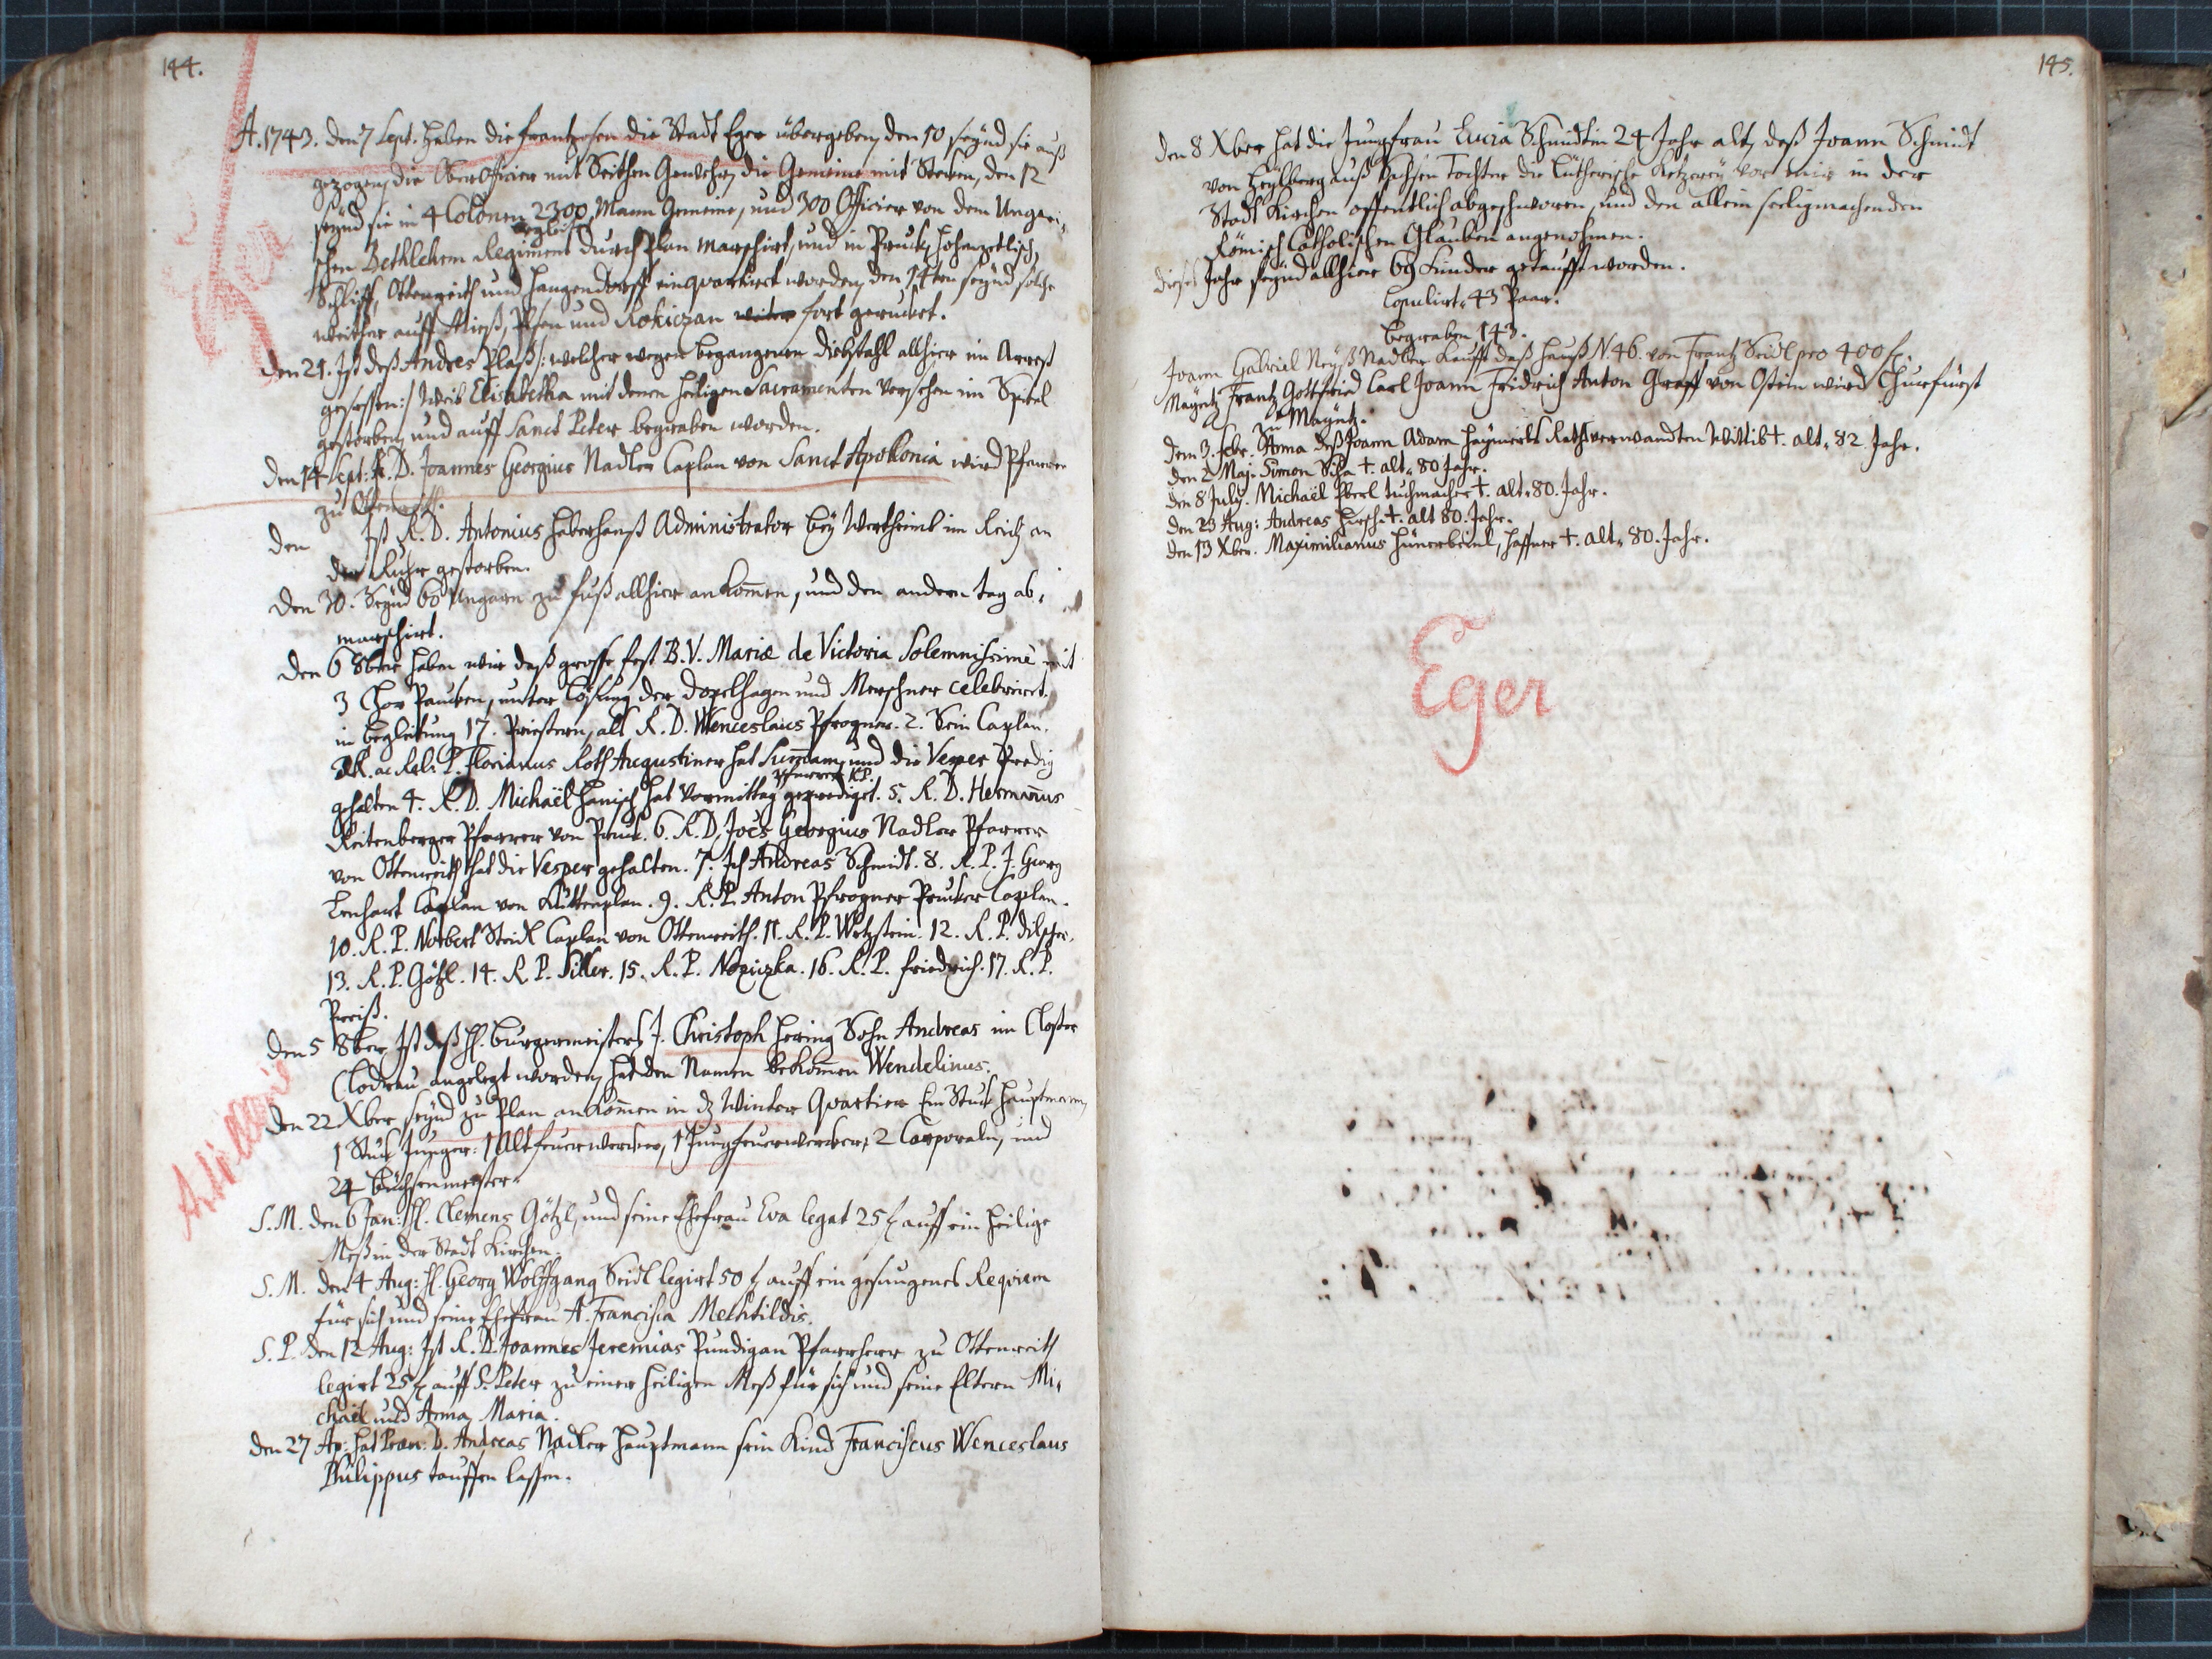 144.
A. 1743. den 7 Sept. haben die frantzosen die Stadt Eger übergeben, den 10 seÿnd sie auß
gezogen, die Ober Officier mit Seithen Gewehr, die Gemeine mit Stecken, den 12
seÿnd sie in 4 Colonen 2300 Mann Gemeine, und 300 Officier von dem Ungari-
begleitet
schen Bethlehem Regiment durch Plan marschirt, und in Pruck, Hohenzetlisch,
Schliff, Ottenreith und Hangendorff einquartirt worden, den 14ten seÿnd solche
weither auff Mieß, Pilsen und Rokiczan weiter fort geruckt.
den 21. Ist deß Andres Plaß /: welcher wegen begangenen diebstahl allhier im Arrest
gesessen :/ Weib Elisabetha mit denen heiligen Sacramenten versehen im Spitel
gestorben, und auff Sanct Peter begraben worden.
den 14 Sept: R. D. Joannes Georgius Nadler Caplan von Sanct Apolonia wird Pfarrer
zu Ottenreith.
den Ist R. D. Antonius Haberhanß Administrator beÿ Wertheimb im Reich an
der Ruhr gestorben.
den 30. Seÿnd 60 Ungarn zu fuß allhier ankom̄en, und den andern tag ab-
marschirt.
den 6 8ber haben wir daß grosse fest B. V. Mariæ de Victoria Solemnissimè mit
3 Chor Paucken, unter Lösung der Dopelhagen und Merschner celebrirt.
in begleitung 17. Priestern, alß R. D. Wenceslaus Pfrogner. 2. Sein Caplan.
3. R. ac Reli. P. Florianus Roth Augustiner hat Sum̄am, und die Vesper Predig
Pfarrer K.P.
gehalten 4. R. D. Michaël Hanisch hat Vormittag geprediget. 5. R. D. Herman̄us
Reitenberger Pfarrer von Pruck. 6. R. D. Joēs Georgius Nadler Pfarrer
von Ottenreith hat die Vesper gehalten. 7. Ich Andreas Schmidt. 8. R. P. J. Georg
Lenhart Caplan von Kuttenplan. 9. R. P. Anton Pfrogner Prucker Caplan.
10. R. P. Norbert Steidl Caplan von Ottenreith. 11. R. P. Wetzstein. 12. R. P. Dilscher.
13. R. P. Götzl. 14. R. P. Siller. 15. R. P. Nopiczka. 16. R. P. friedrich. 17. R. P.
Preiß.
den 5 8ber Ist deß H. Burgermeisters J. Christoph Hering Sohn Andreas im Closter
Clodrau angelegt worden, hat den Namen bekom̄en Wendelinus.
den 22 Xber seÿnd zu Plan ankom̄en in dz Winter Quartier Ein Stuck Hauptmann,
1 Stuck Juncker: 1 Alt feuerwercker, 1 Jung feuerwercker, 2 Corporaln, und
24 Büchsenmeister.
S. M. den 6 Jan: H. Clemens Götzl, und seine Ehefrau Eva legat 25 f auff ein heilige
Meß in der Stadt Kirchen.
S. M. den 4 Aug: H. Georg Wolffgang Seidl legirt 50 f auff ein gesungenes Reqviem
für sich und seine Ehefrau A. Francisca Mechtildis.
S. P. den 12 Aug: Ist R. D. Joannes Jeremias Pundigan Pfarrherr zu Ottenreith
legirt 25 f auff S. Peter zu einer heiligen Meß für sich und seine Eltern Mi-
chaël und Anna Maria.
den 27 Ap: hat Præn: D. Andreas Nadler Hauptmann sein Kind Franciscus Wenceslaus
Philippus tauffen lassen.
Eger
Artillerie
145.
den 8 Xber hat die Jungfrau Lucia Schmidtin 24 Jahr alt, deß Joann Schmidt
von auß Sachsen Tochter die Lutherische Ketzereÿ vor mir in der
Stadt Kirchen offentlich abgeschworen, und den allein seeligmachenden
Römisch Catholischen Glauben angenohmen.
dieses Jahr seÿnd allhier 69 Kinder getaufft worden.
Copulirt. 43 Paar.
begraben 143.
Joann Gabriel Neÿß Nadler kaufft daß Hauß N. 46. von Frantz Seidl pro 400 f.
Maÿntz Frantz Gottfried Carl Joann Fridrich Anton Graff von Ostein wird Churfürst
zu Maÿntz.
dem 3. febr. Anna deß Joann Adam Haÿmerls Rathsverwandten Wittib †. alt. 82 Jahr.
den 2 Maj. Simon †. alt. 80 Jahr.
den 8 Julÿ. Michaël Eberl Tuchmacher †. alt. 80. Jahr.
den 23 Aug: Andreas Hirsch. †. alt 80. Jahr.
den 13 Xber. Maximilianus Hünerbeinl, Haffner †. alt. 80. Jahr.
Eger